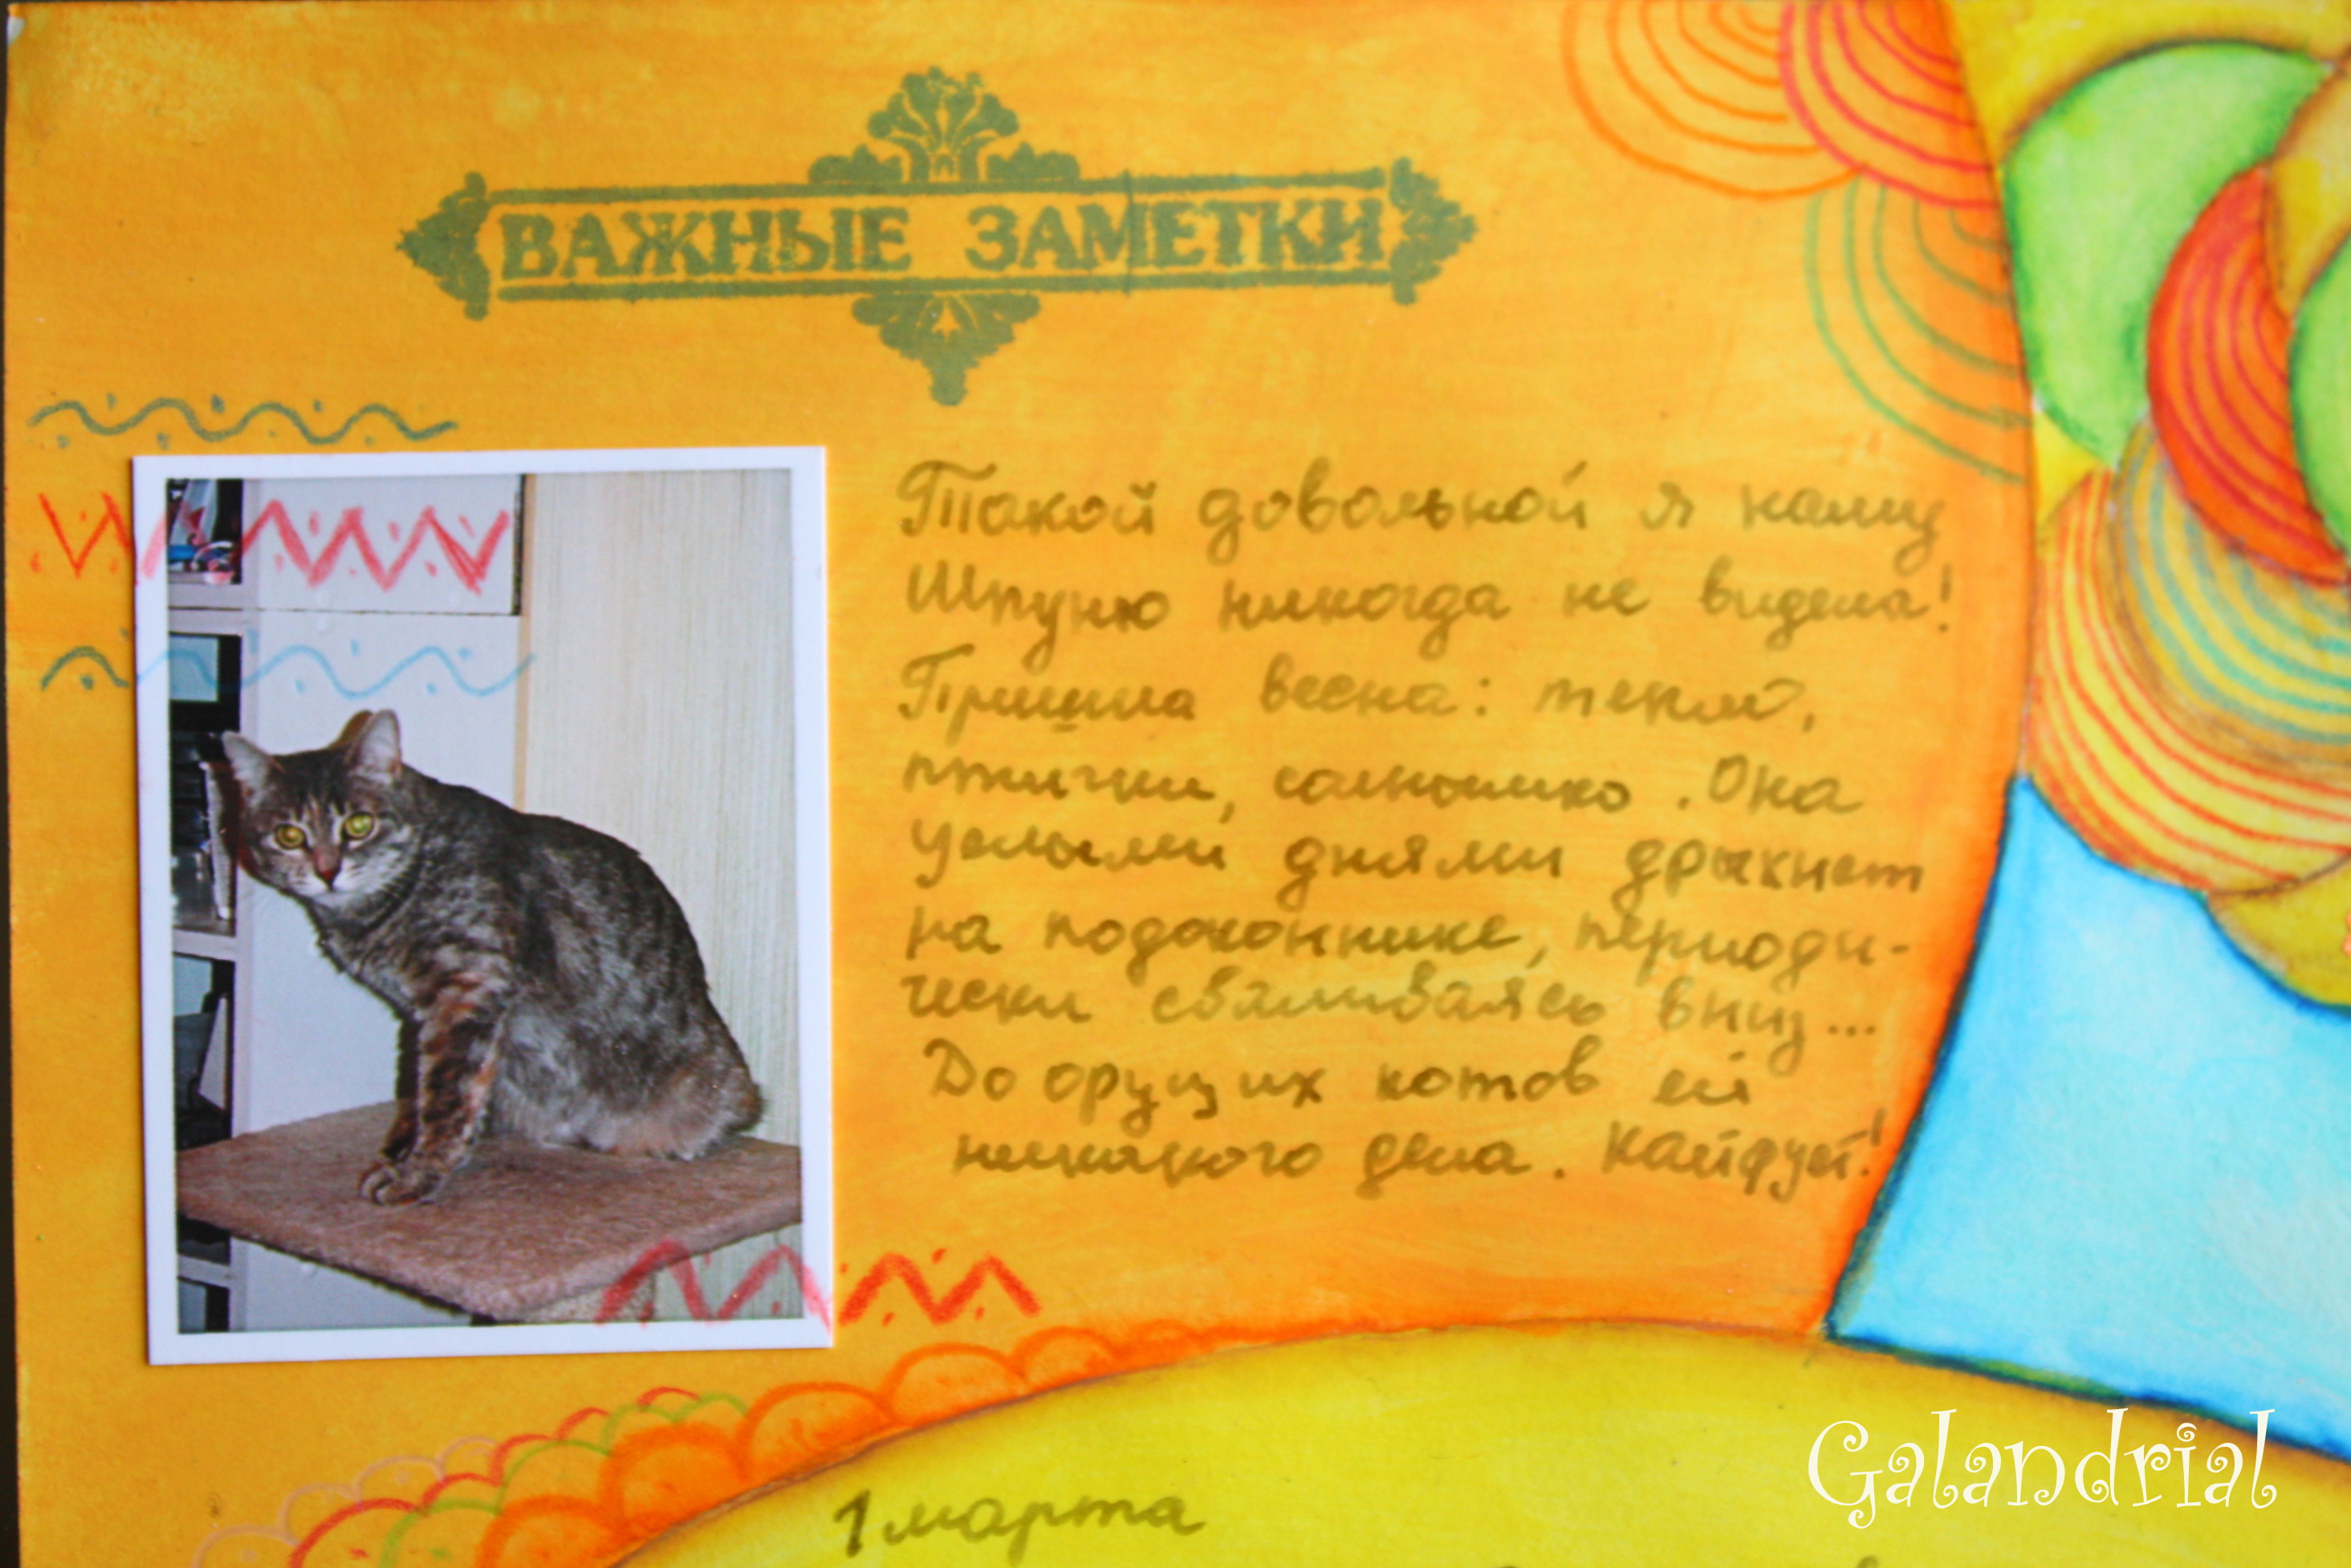 ВАЖНЫЕ ЗАМЕТКИ
Такой довольной я нашу
Шпуню никогда не видела!
Пришла весна: тепло,
птички, солнышко. Она
целыми днями дрыхнет
на подоконнике, периоди-
чески сваливаясь вниз...
До орущих котов ей
никакого дела. Кайфует!
1 марта
Galandrial